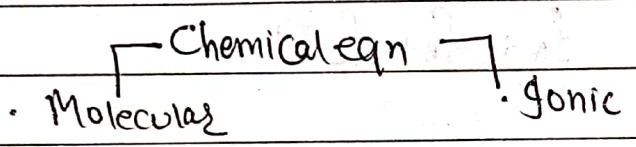 Chemical eqn
• Molecular • Ionic